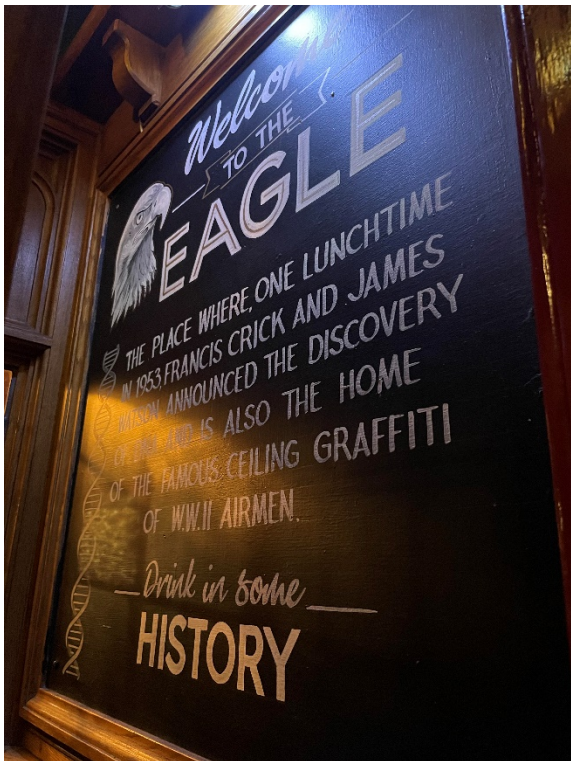 Welcome
TO THE
EAGLE
THE PLACE WHERE, ONE LUNCHTIME
IN 1953, FRANCIS CRICK AND JAMES
WATSON ANNOUNCED THE DISCOVERY
OF DNA AND IS ALSO THE HOME
OF THE FAMOUS CEILING GRAFFITI
OF W.W.II AIRMEN.
Drink in some
HISTORY